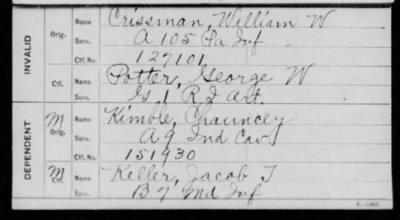 INVALID
Orig. Name Crissman, William W
Serv. A 105 Pa Inf
Ctf. No. 127101
Ctf. Name Potter, George W
Serv. G. 1 R I Art.
DEPENDENT
M Orig. Name Kimble, Chauncey
Serv. A 9 Ind Cav
Ctf. No. 151930
M Ctf. Name Keller, Jacob T
Serv. B 7 Ind Inf